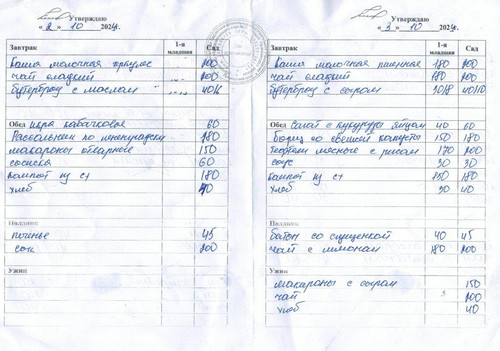 Утверждаю
« 2 » 10 2024г
Завтрак 1-я младшая Сад
Каша молочная геркулес 200
чай сладкий 200
бутерброд с маслом 40/6
Обед икра кабачковая 60
Рассольник по ленинградски 180
макароны отварные 150
сосиска 60
компот из с/ф 180
хлеб 40
Полдник
печенье 45
сок 200
Ужин
Утверждаю
« 3 » 10 2024г
Завтрак 1-я младшая Сад
Каша молочная пшенная 180 200
чай сладкий 180 200
бутерброд с сыром 30/8 40/10
Обед Салат с кукурузы яйцом 40 60
Борщ со свежей капусты 150 180
Тефтели мясные с рисом 170 200
соус 30 30
компот из с/ф 150 180
хлеб 30 40
Полдник
батон со сгущенкой 40 45
чай с лимоном 180 200
Ужин
макароны с сыром 150
чай 200
хлеб 40